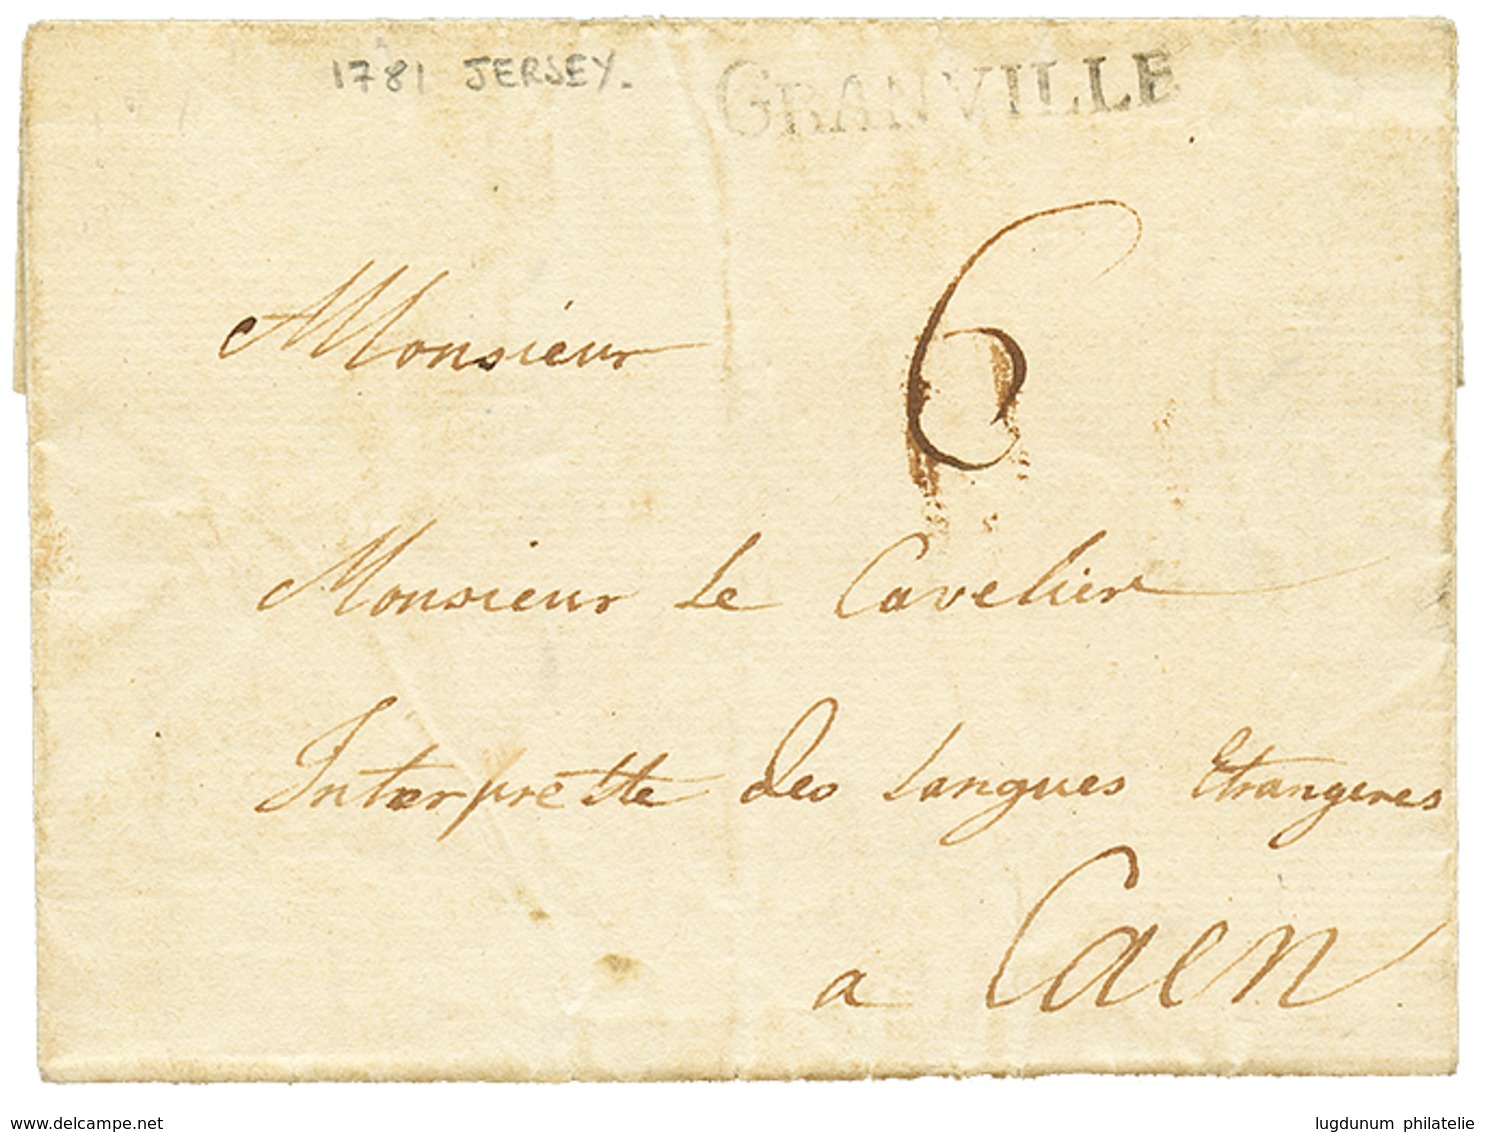 1781 JERSEY.
GRANVILLE
6
Monsieur
Monsieur Le Cavelier
Interprette des Langues Etrangeres
a Caen
www.delcampe.net
lugdunum philatelie